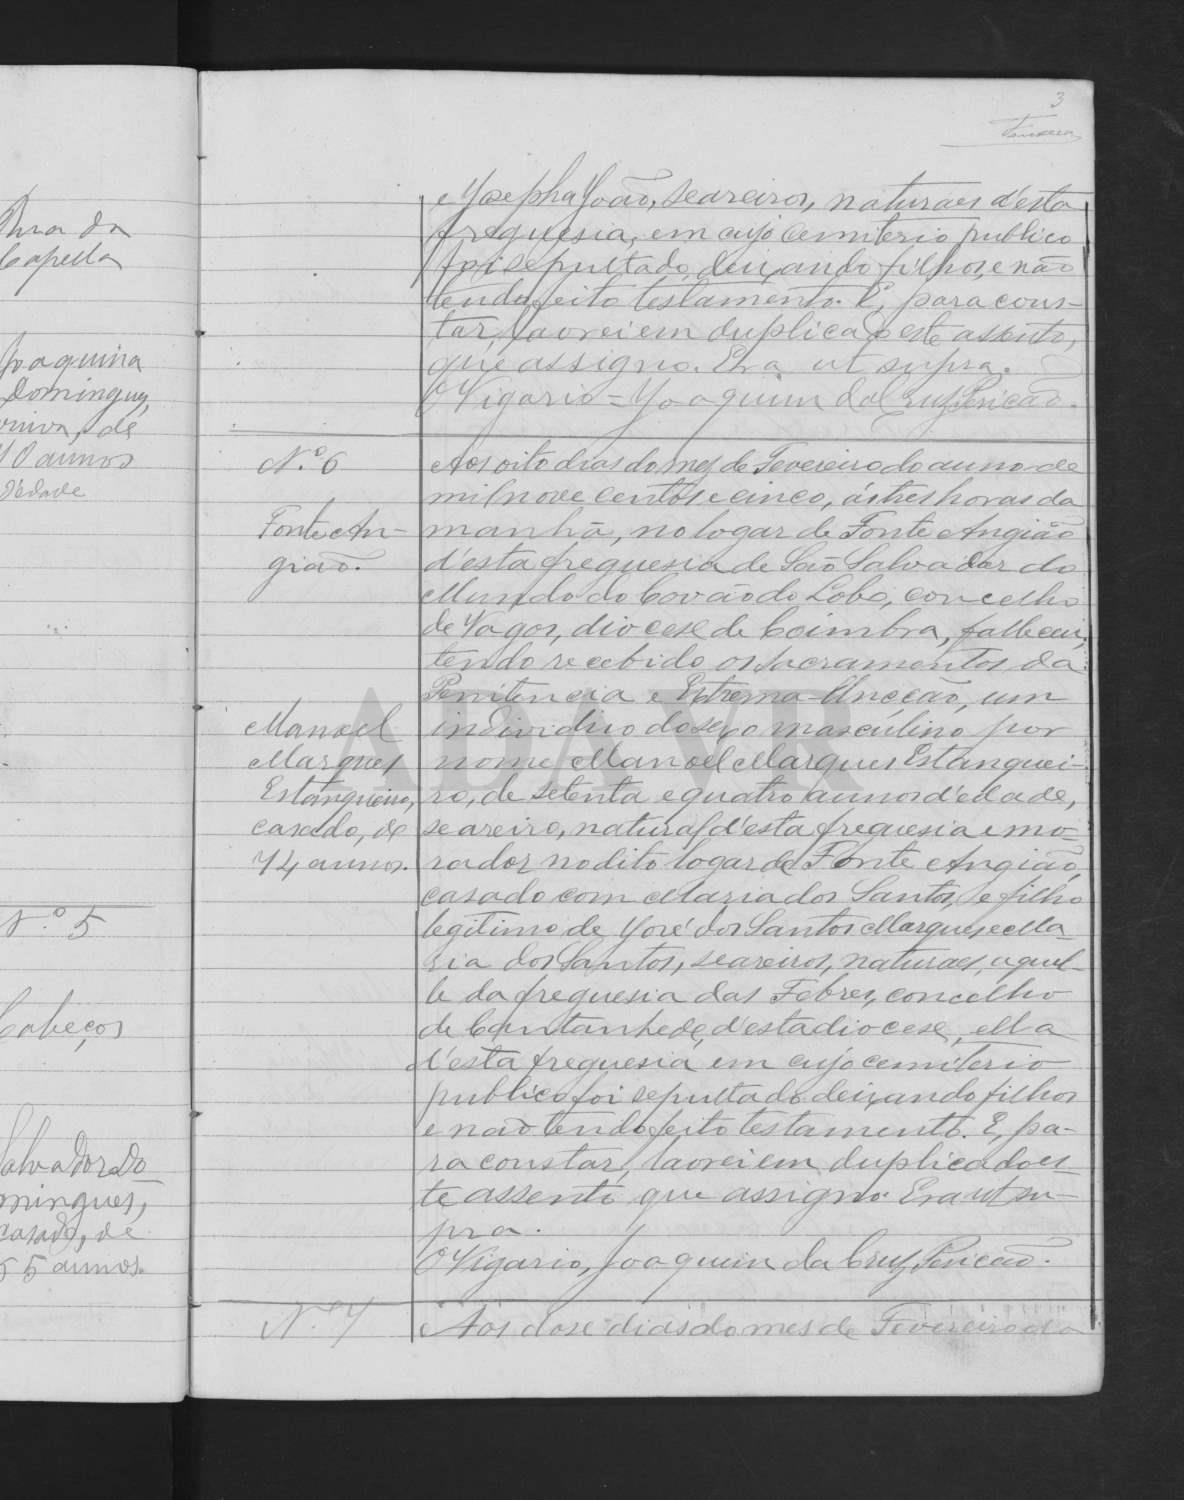 Rua da
Capella
Joaquina
Domingues,
viuva, de
70 annos
d'edade
N.º 5
Cabeços
Salvador Do
mingues,
casado, de
55 annos.
3
e Josepha João, seareiros, naturaes d'esta
freguesia, em cujo cemiterio publico
foi sepultado, deixando filhos, e não
tendo feito testamento. E, para cons-
tar, lavrei em duplicado este assento,
que assigno. Era ut supra.
O Vigario = Joaquim da Cruz Pericão.
N.º 6
Fonte An-
gião.
Manoel
Marques
Estanqueiro,
casado, de
74 annos.
Aos oito dias do mez de Fevereiro do anno de
mil nove centos e cinco, ás tres horas da
manhã, no logar de Fonte Angião
d'esta freguesia de São Salvador do
Mundo do Covão do Lobo, concelho
de Vagos, diocese de Coimbra, falleceu,
tendo recebido os sacramentos da
Penitencia e Extrema-Uncção, um
individuo do sexo masculino por
nome Manoel Marques Estanquei-
ro, de setenta e quatro annos d'edade,
seareiro, natural d'esta freguesia e mo-
rador no dito logar de Fonte Angião,
casado com Maria dos Santos, e filho
legitimo de José dos Santos Marques e Ma-
ria dos Santos, seareiros, naturaes, aquel-
le da freguesia das Febres, concelho
de Cantanhede, d'esta diocese, ella
d'esta freguesia em cujo cemiterio
publico foi sepultado deixando filhos
e não tendo feito testamento. E, pa-
ra constar, lavrei em duplicado es-
te assento que assigno. Era ut su-
pra.
O Vigario, Joaquim da Cruz Pericão.
N.º 7
Aos dose dias do mes de Fevereiro do
ADAVR